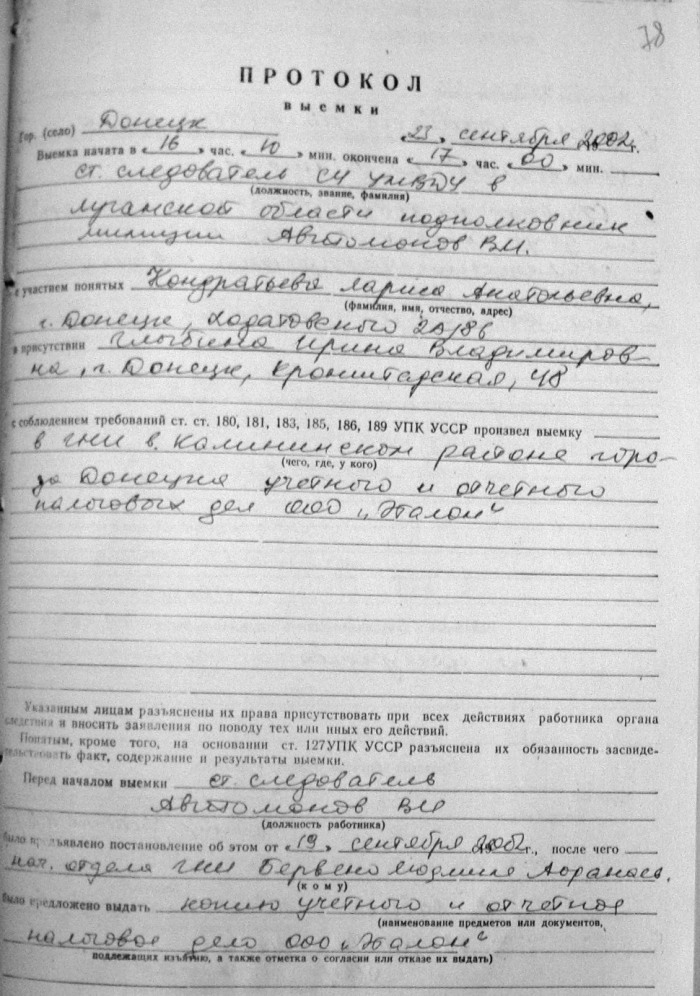 78
ПРОТОКОЛ
выемки
Гор. (село) Донецк
23, сентября 2002г.
Выемка начата в «16» час. «10» мин. окончена «17» час. «00» мин.
ст. следователь СУ УМВДУ в
(должность, звание, фамилия)
Луганской области подполковник
милиции Автомонов В.И.
с участием понятых Кондратьева Лариса Анатольевна,
(фамилия, имя, отчество, адрес)
г. Донецк, 2А/86
в присутствии Ирина Владимиров-
на, г. Донецк, Кронштадская, 48
с соблюдением требований ст. ст. 180, 181, 183, 185, 186, 189 УПК УССР произвел выемку
в ГНИ в Калининском районе горо-
(чего, где, у кого)
да Донецка учетного и отчетного
налоговых дел ООО „Эталон“
Указанным лицам разъяснены их права присутствовать при всех действиях работника органа
следствия и вносить заявления по поводу тех или иных его действий.
Понятым, кроме того, на основании ст. 127УПК УССР разъяснена их обязанность засвиде-
тельствовать факт, содержание и результаты выемки.
Перед началом выемки ст. следователь
Автомонов ВИ
(должность работника)
было предъявлено постановление об этом от «19» сентября 2002г., после чего
нач. отдела ГНИ Людмиле Афанас.
(кому)
было предложено выдать копию учетного и отчетное
(наименование предметов или документов,
налоговое дело ООО „Эталон“
подлежащих изъятию, а также отметка о согласии или отказе их выдать)